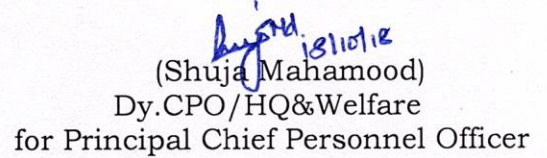 18/10/18
(Shuja Mahamood)
Dy.CPO/HQ&Welfare
for Principal Chief Personnel Officer